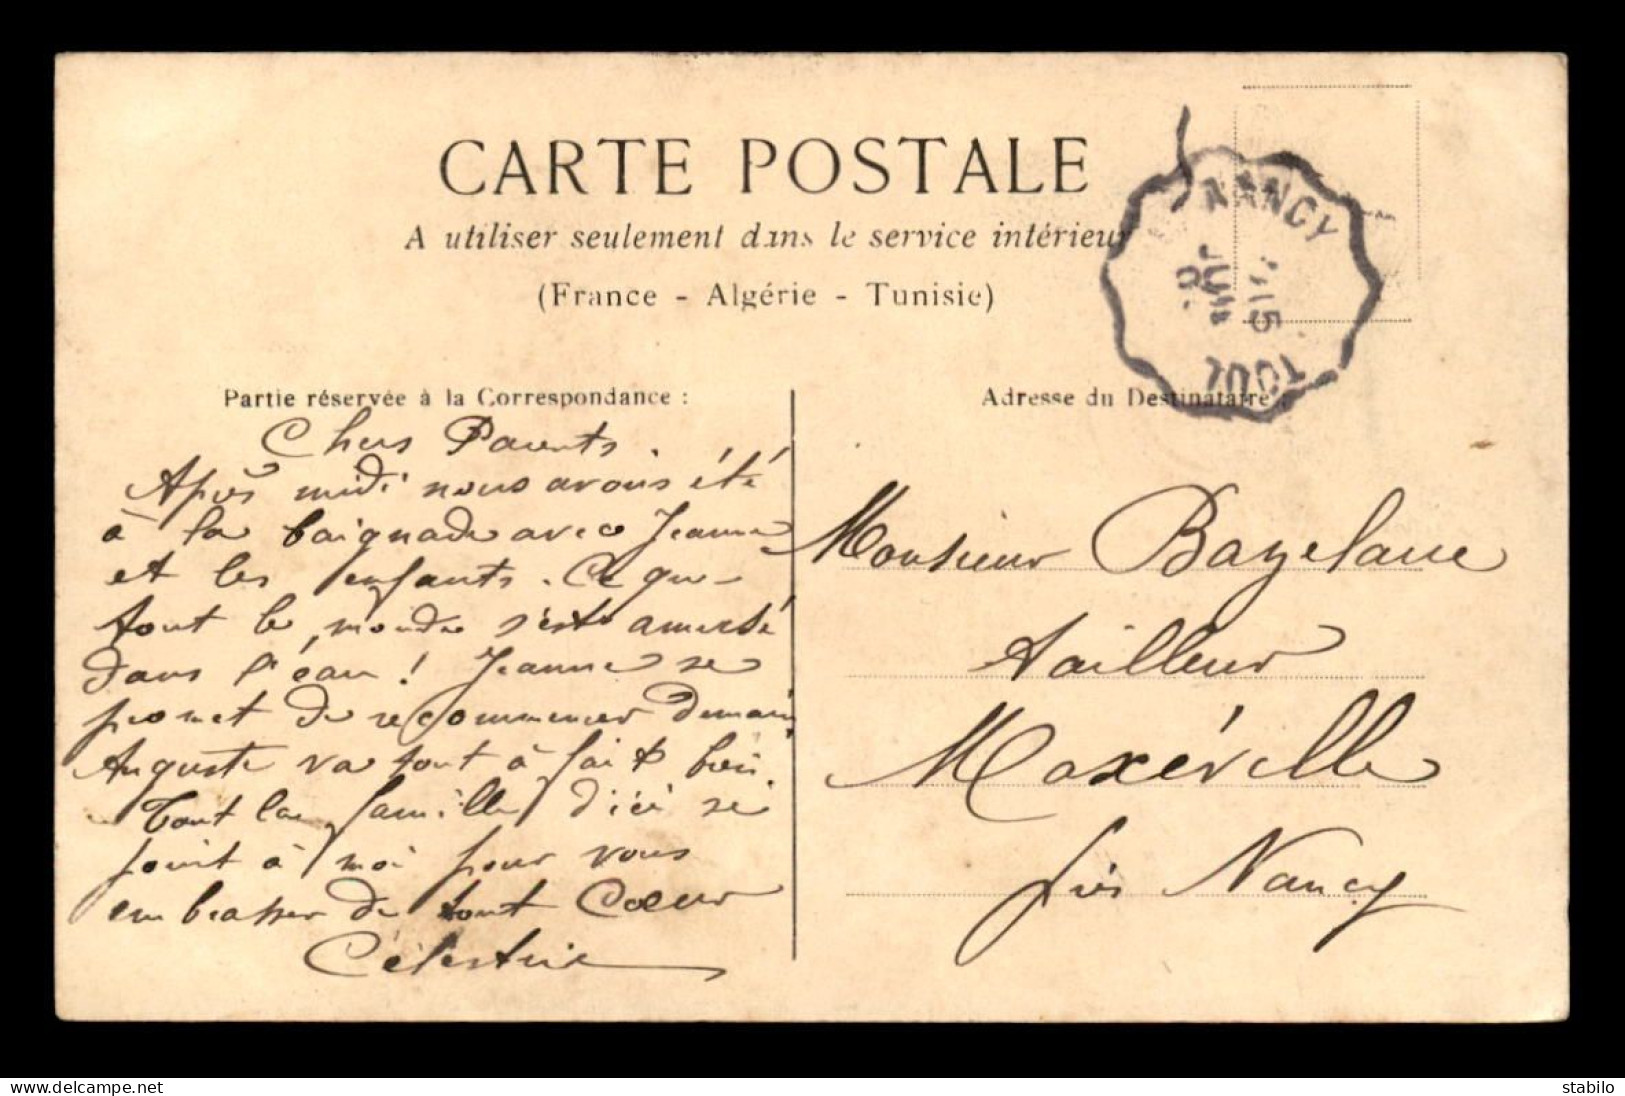 CARTE POSTALE
A utiliser seulement dans le service intérieur
(France - Algérie - Tunisie)
NANCY
15
JUIN
TOUL
Partie réservée à la Correspondance :
Chers Parents.
Après midi nous avons été
à la baignade avec Jeanne
et les enfants. Ce que
tout le monde s'est amusé
dans l'eau ! Jeanne se
promet de recommencer demain,
Auguste va tout à fait bien.
Tout la famille d'ici se
joint à moi pour vous
embrasser de tout Coeur
Célestine
Adresse du Destinataire :
Monsieur Bazelaire
tailleur
Maxéville
près Nancy
delcampe.net
stabilo